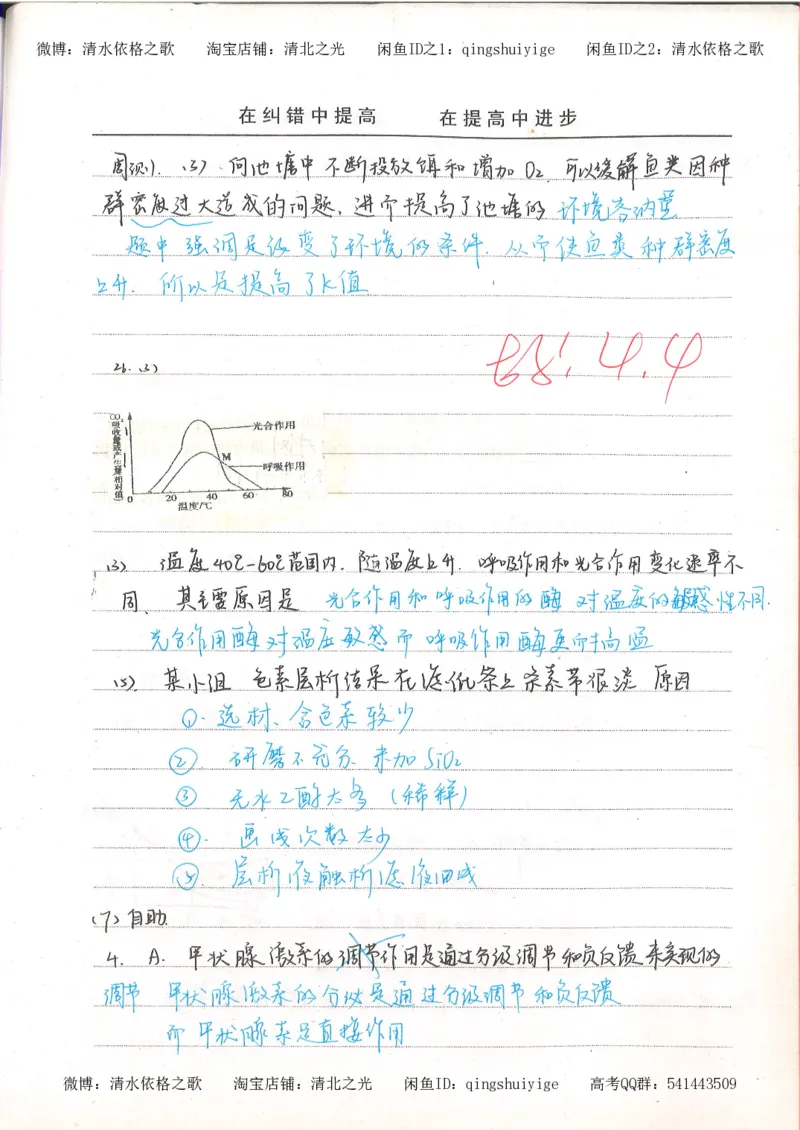 微博：清水依格之歌 淘宝店铺：清北之光 闲鱼ID之1：qingshuiyige 闲鱼ID之2：清水依格之歌
在纠错中提高 在提高中进步
周测1. (3) 向池塘中不断投放饵和增加O2. 可以缓解鱼类因种
群密度过大造成的问题, 进而提高了池塘的 环境容纳量
题中强调是改变了环境的条件. 从而使鱼类种群密度
上升. 所以是提高了K值
4.4
26. (3)
CO2吸收量或产生量(相对值)
光合作用
M
呼吸作用
0 20 40 60 80
温度/℃
(3) 温度40℃-60℃范围内. 随温度上升. 呼吸作用和光合作用变化速率不
同、其主要原因是 光合作用和呼吸作用的酶对温度的敏感性不同.
光合作用酶对温度敏感而呼吸作用酶更耐高温
(5). 某小组 色素层析结果在滤纸条上 色素带很淡 原因
①. 选材、含色素较少
② 研磨不充分. 未加SiO2
③ 无水乙醇太多 (稀释)
④. 画线次数太少
⑤. 层析液触析滤液细线
(7) 自助
4. A. 甲状腺激素的调节作用是通过分级调节和负反馈来实现的
调节 甲状腺激素的分泌是通过分级调节和负反馈
而甲状腺素是直接作用
微博：清水依格之歌 淘宝店铺：清北之光 闲鱼ID：qingshuiyige 高考QQ群：541443509